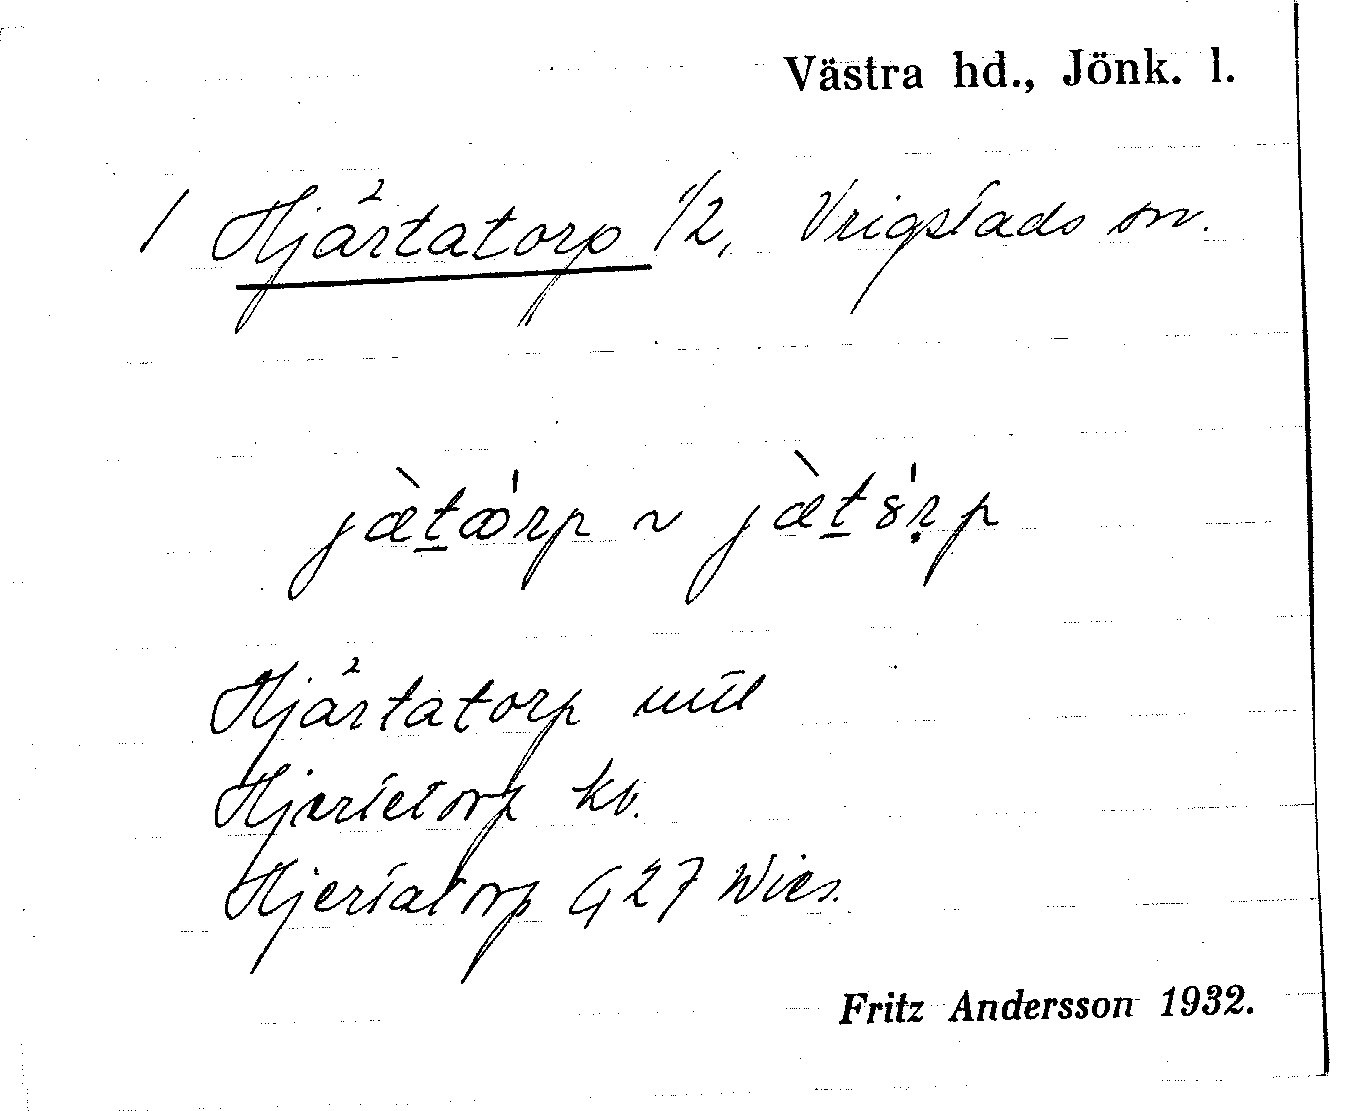 Västra hd., Jönk. l.
1 Hjärtatorp 1/2, Vrigstads sn.
jæ̀t̲ǿrp ~ jæ̀t̲ṛ́p
Hjärtatorp
Hjertetorp kv.
Hjertatorp G 27 Wies.
Fritz Andersson 1932.